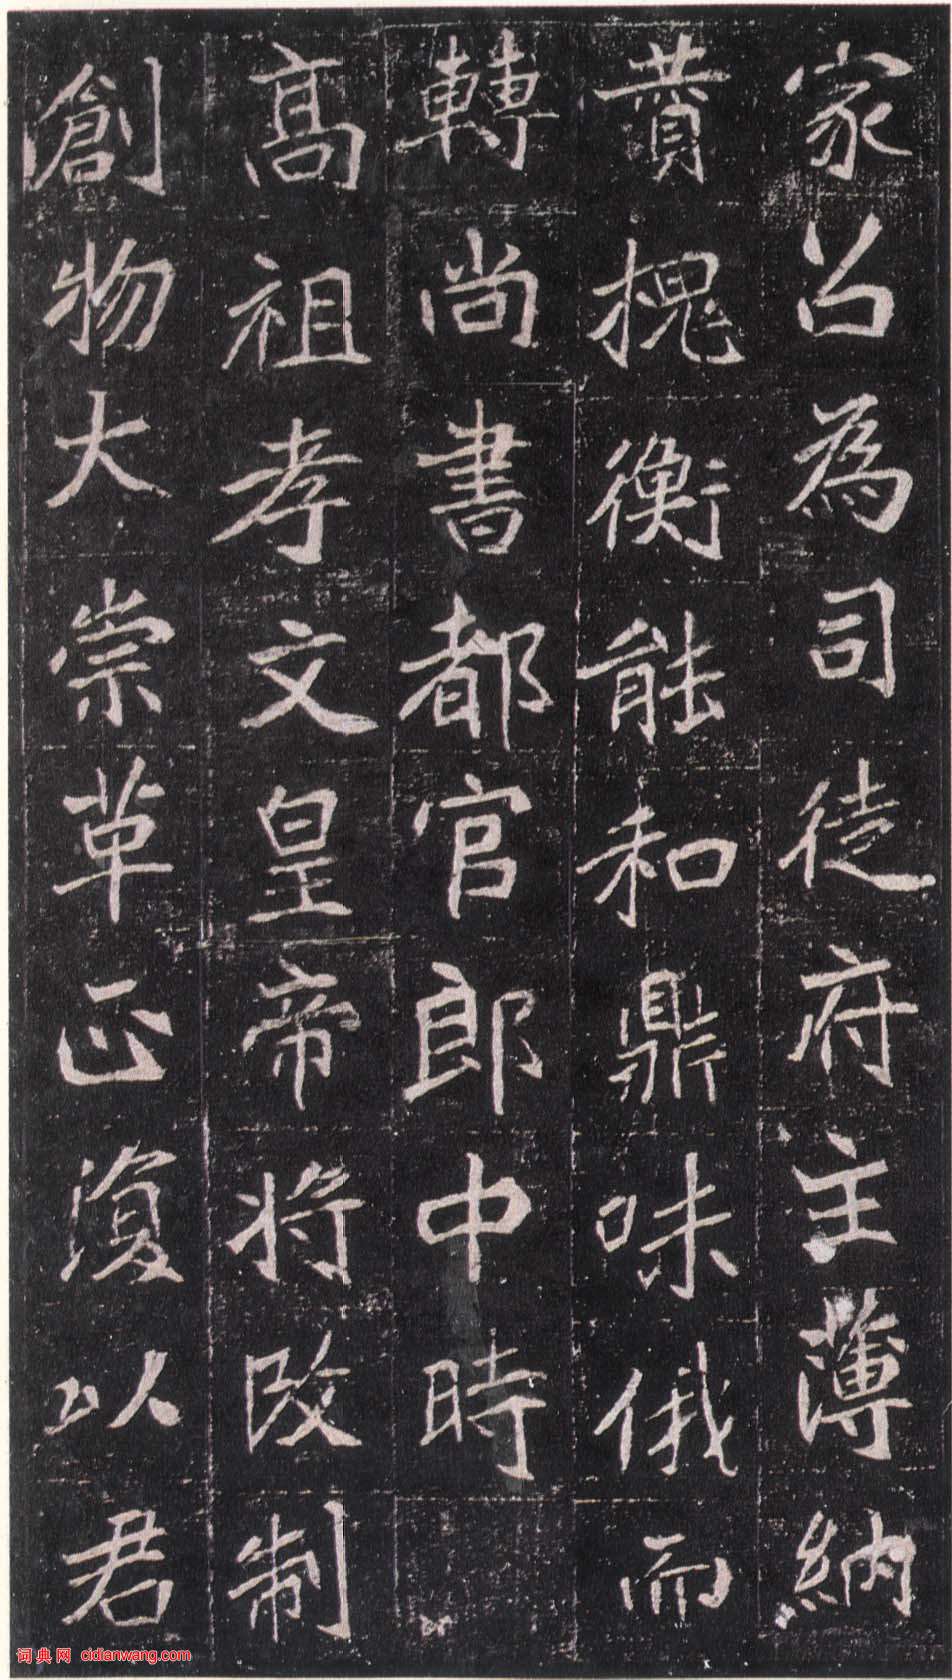 家召為司徒府主薄納
賛槐衡能和鼎味俄而
轉尚書都官郎中時
高祖孝文皇帝将改制
創物大崇革正復以君
词典网 cidianwang.com